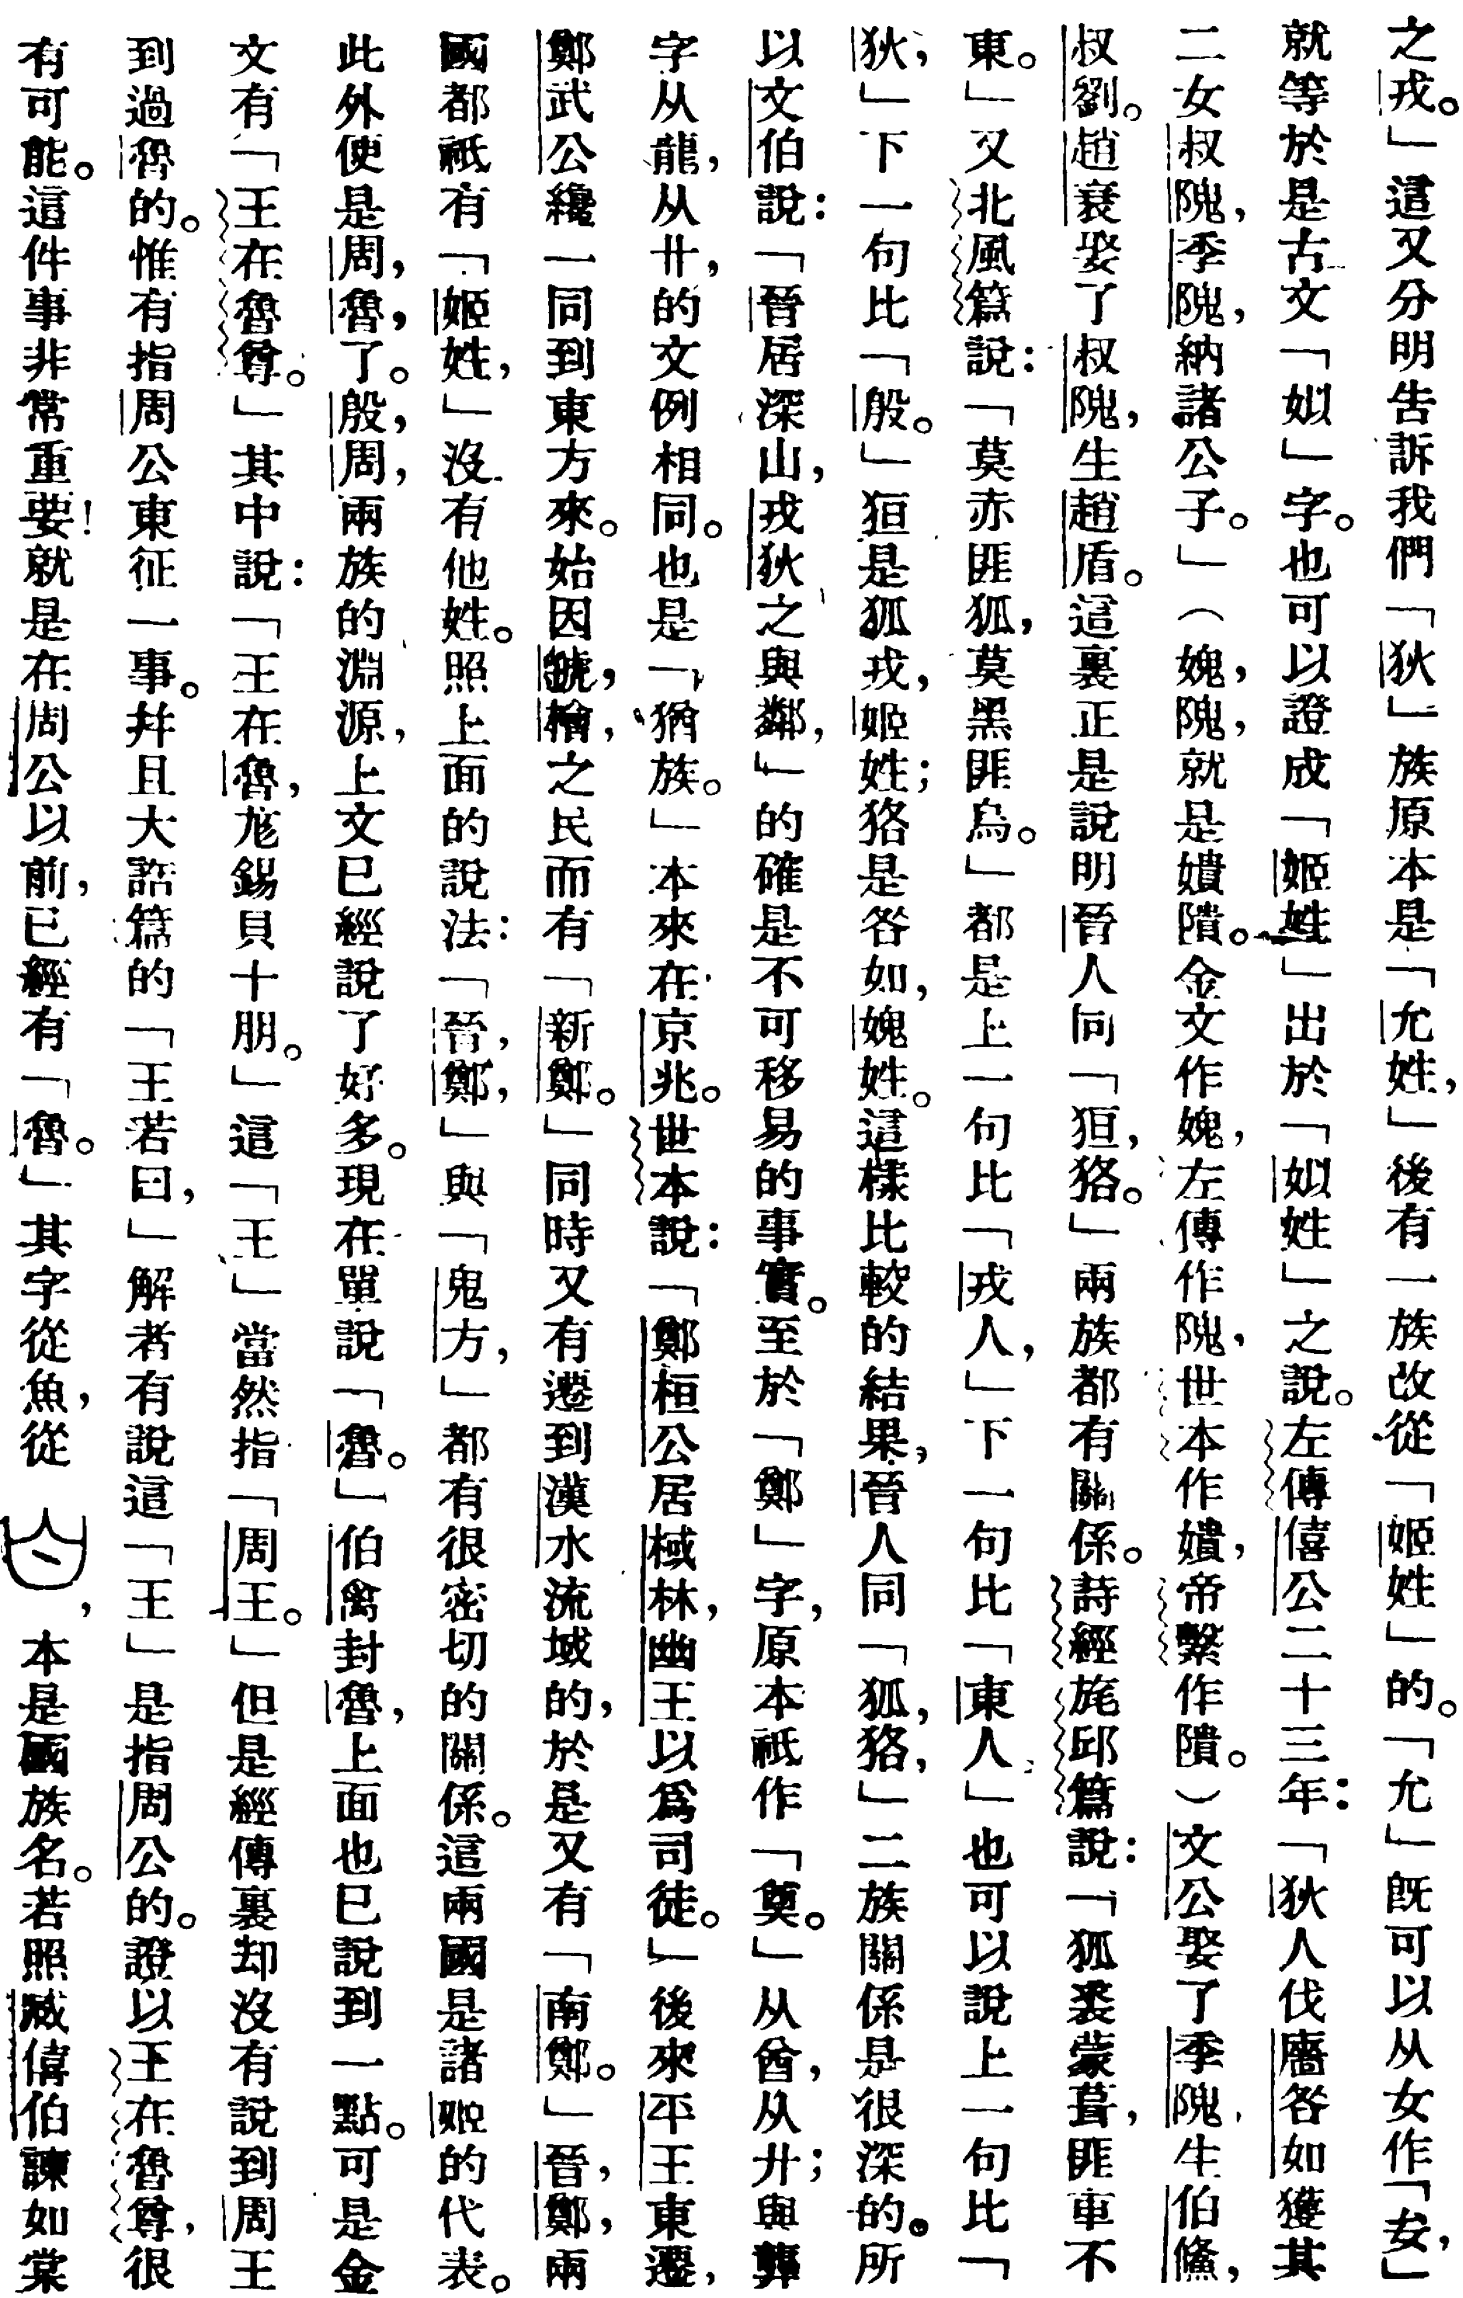 之戎。」這又分明告訴我們「狄」族原本是「允姓，」後有一族改從「姬姓」的。「允」既可以从女作「㚣，」
就等於是古文「姒」字。也可以證成「姬姓」出於「姒姓」之說。左傳僖公二十三年：「狄人伐廧咎如獲其
二女叔隗，季隗，納諸公子。」（媿，隗，就是嬇隤。金文作媿，左傳作隗，世本作嬇，帝繫作隤。）文公娶了季隗，生伯鯈，
叔劉。趙衰娶了叔隗，生趙盾。這裏正是說明晉人同「狟，狢。」兩族都有關係。詩經旄邱篇說：「狐裘蒙葺，匪車不
東。」又北風篇說：「莫赤匪狐，莫黑匪烏。」都是上一句比「戎人，」下一句比「東人」也可以說上一句比「
狄，」下一句比「殷。」狟是狐戎，姬姓；狢是咎如，媿姓。這樣比較的結果，晉人同「狐，狢，」二族關係是很深的。所
以文伯說：「晉居深山，戎狄之與鄰，」的確是不可移易的事實。至於「鄭」字，原本祇作「奠。」从酋，从廾；與龏
字从龍，从廾，的文例相同。也是「猶族。」本來在京兆。世本說：「鄭桓公居棫林，幽王以爲司徒。」後來平王東遷，
鄭武公纔一同到東方來。始因虢，檜，之民而有「新鄭。」同時又有遷到漢水流域的，於是又有「南鄭。」晉，鄭，兩
國都祇有「姬姓，」沒有他姓。照上面的說法：「晉，鄭，」與「鬼方，」都有很密切的關係。這兩國是諸姬的代表。
此外便是周，魯，了。殷，周，兩族的淵源，上文已經說了好多。現在單說「魯。」伯禽封魯，上面也已說到一點。可是金
文有「王在魯尊。」其中說：「王在魯，𢓊錫貝十朋。」這「王」當然指「周王。」但是經傳裏却沒有說到周王
到過魯的。惟有指周公東征一事。并且大誥篇的「王若曰，」解者有說這「王」是指周公的。證以王在魯尊，很
有可能。這件事非常重要！就是在周公以前，已經有「魯。」其字從魚，從，本是國族名。若照臧僖伯諫如棠